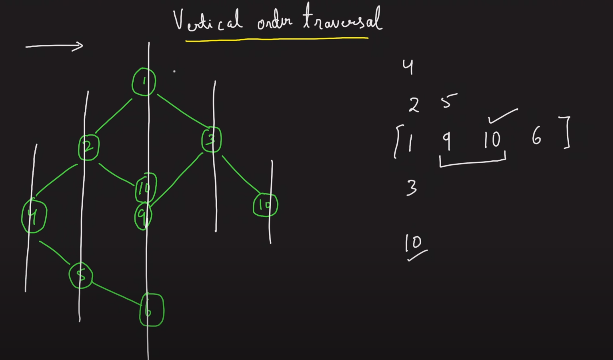 Vertical order traversal
1
2
3
10
4
9
10
5
6
4
2 5
[ 1 9 10 6 ]
3
10